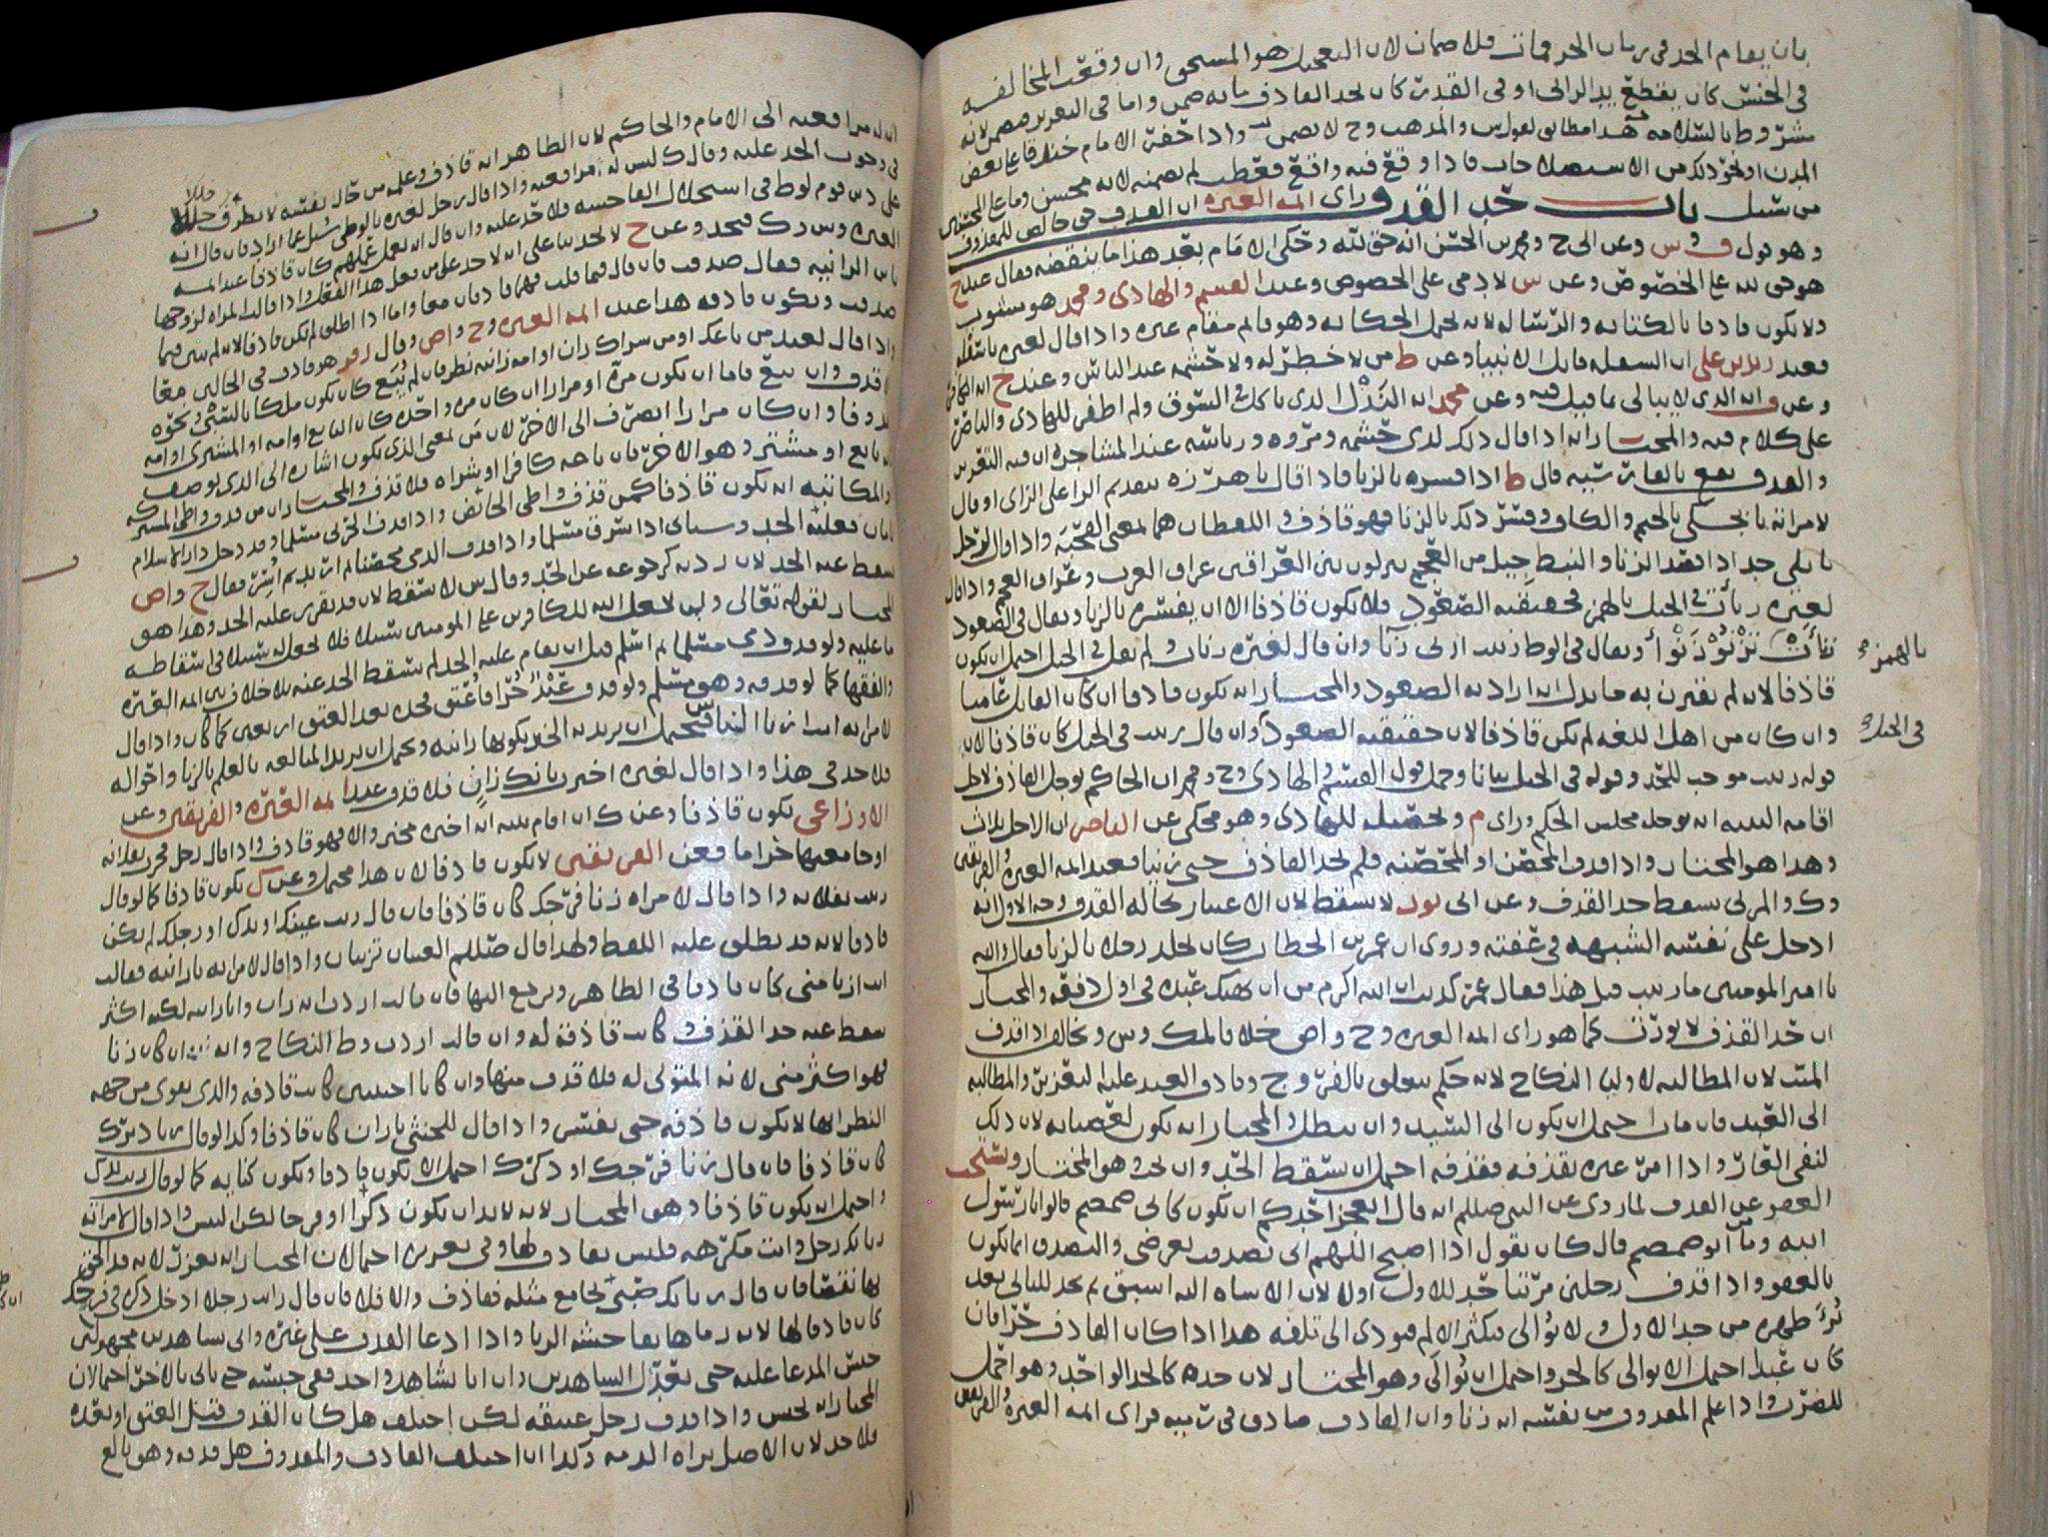 بان يقام الحد في زمان الحر فمات فلا ضمان لان التعجيل هو المستحق وان وقعت المخالفه
في الجنس كان يقطع يد الزاني او في القدر كان يحد القاذف مايه ضمن واما في التعزير فيضمن لانه
مشروط بالسلامه هذا مطابق لقول س والمذهب وح لا يضمن واذا خفر الامام خندقا على بعض
المدن او نحو ذلك من الاستصلاحات فاذا وقع فيه واقع فعطب لم يضمنه لانه محسن وما على المحسنين
من سبيل باب حد القذف راى ايمه العتره ان القذف حق خالص للمقذوف
وهو قول ف و س وعن ابي ح ومحمد بن الحسن انه حق لله وحكى الامام بعد هذا ما ينقضه فقال عند ح
هو حق لله على الخصوص وعن س لادمي على الخصوص وعند القسم والهادي ومحمد هو مشوب
ولا يكون قاذفا بالكتابه والرساله لانه يحمل الحكايه وهو قايم مقام غيره واذا قال لغيره يا سفله
فعند زيد بن علي ان السفله قاتل الانبيا وعن ط من لا خطر له ولا حشمه عند الناس وعند ح انه الكافر
وعن ف انه الذي لا يبالي بما قيل فيه وعن محمد انه النذل الذي ياكل في السوق ولم اظفر للهادي والناصر
على كلام فيه والمختار انه اذا قال ذلك لذي حشمه ومروه ورياسه عند المشاجره ان فيه التعزير
والقذف يقع بالفارسيه قال ط اذا فسره بالزنا فاذا قال يا هرزه بتقديم الرا على الزاي او قال
لامراته يا بجكي بالجيم والكاف وفسر ذلك بالزنا فهو قاذف واللفظان هما بمعنى القحبه واذا قال لرجل
يا نبطي حد اذا قصد الزنا والنبط جيل من العجم ينزلون بين العراقين عراق العرب وعراق العجم واذا قال
لغيره زنأت في الجبل بالهمز فحقيقته الصعود فلا يكون قاذفا الا ان يفسره بالزنا ويقال في الصعود
زنأت تزنؤ زنوا ويقال في الوط زنيت ازني زنا وان قال لغيره زنات ولم يقل في الجبل احتمل ان يكون
قاذفا لانه لم يقترن به ما يدل انه اراد به الصعود والمختار انه يكون قاذفا ان كان القايل عاميا
وان كان من اهل اللغه لم يكن قاذفا لان حقيقته الصعود وان قال زنيت في الجبل كان قاذفا لان
قوله زنيت موجب للحد وقوله في الجبل بيانا وحمل قول القسم والهادي وح ومحمد ان الحاكم يوجل القاذف لاجل
اقامه البينه انه يوجله مجلس الحكم وراى م وتحصيله للهادي وهو محكي عن الناصر ان الاجل ثلاث
وهذا هو المختار واذا قذف المحصن او المحصنه فلم يحد القاذف حتى زنيا فعند ايمه العتره والفريقين
وك والمزني يسقط حد القذف وعن ابي ثور لا يسقط لان الاعتبار بحاله القذف وجه الاول انه
ادخل على نفسه الشبهه في عفته وروي ان عمر بن الخطاب كان يجلد رجلا بالزنا فقال والله
يا امير المومنين ما زنيت قبل هذا فقال عمر كذبت ان الله اكرم من ان يهتك عبده في اول دفعه والمختار
ان حد القذف لا يورث كما هو راى ايمه العتره وح واص خلافا لمالك وس ونخالف اذا قذف
الميت لان المطالبه لاوليا النكاح لانه حكم يتعلق بالفروج وقاذف العبد عليه التعزير والمطالبه
الى العبد فان مات احتمل ان يكون الى السيد وان يبطل والمختار انه يكون لعصباته لان ذلك
لنفي العار واذا امر غيره بقذفه فقذفه احتمل ان يسقط الحد وان يحد وهو المختار ويستحب
العفو عن القذف لما روي عن النبي صللم انه قال ايعجز احدكم ان يكون كابي ضمضم قالوا يا رسول
الله وما ابو ضمضم قال كان يقول اذا اصبح اللهم اني تصدقت بعرضي والتصدق انما يكون
بالعفو واذا قذف رجلين مرتبا حد للاول اولا لان الاساه اليه اسبق ثم يحد للثاني بعد
برء ظهره من حد الاول ولا يوالي فيكثر الالم فيودي الى تلفه هذا اذا كان القاذف حرا فان
كان عبدا احتمل الا يوالي كالحر واحتمل ان يوالى وهو المختار لان حده كالحد الواحد وهو احمل
للضرب واذا علم المقذوف من نفسه انه زنا وان القاذف صادق في سبه فراى ايمه العتره والفريقين
بالهمزه
في الجبل
ان له مرافعته الى الامام والحاكم لان الظاهر انه قاذف وعلمه من حال نفسه لا يطرق خللا
في وجوب الحد عليه وقال ك ليس له مرافعته واذا قال رجل لغيره يا لوطي سئل عما اراد فان قال انه
على دين قوم لوط في استحلال الفاحشه فلا حد عليه وان قال انه يعمل عملهم كان قاذفا عند ايمه
العتره وس وك فيحد وعن ح لا يحد بنا على ان لا حد على من فعل هذا الفعل واذا قالت المراه لزوجها
يابن الزانيه فقال صدقت
صدقت ويكون قاذفه هذا عند ايمه العتره وح واص وقال زفر هو قاذف في الحالين معا
واذا قال لعبد من باعك او من شراك زان او امه زانيه نظر فان لم يبع كان يكون ملكا بالسبي ونحوه
فلا قذف وان بيع فاما ان يكون مره او مرارا ان كان مره واحده كان البايع او امه او المشتري او امه
مقذوفا وان كان مرارا انصرف الى الاخر لان من بمعنى الذي يكون اشاره الى الذي يوصف
انه بايع او مشتر وهو الاخر فان باعه كافر او شراه فلا قذف والمختار ان من قذف واطي المشتركه
والمكاتبه انه يكون قاذفا كمن قذف واطي الحائض واذا قذف الحربي مسلما وقد دخل دار الاسلام
بامان فعليه الحد وسياتي اذا سرق مسلما واذا قذف الذمي محصنا ثم ارتد ثم اسر فقال ح واص
يسقط عنه الحد لان ردته كرجوعه عن الحد وقال س لا يسقط لان قد تقرر عليه الحد وهذا هو
المختار لقوله تعالى ولن يجعل الله للكافرين على المومنين سبيلا فلا يجعل له سبيلا في اسقاط
ما عليه ولو قذف ذمي مسلما ثم اسلم قبل ان يقام عليه الحد لم يسقط الحد عنه بلا خلاف بين ايمه العتره
والفقها كما لو قذفه وهو مسلم ولو قذف عبد حرا فاعتق فحده بعد العتق اربعين كما كان واذا قال
لامراته انت ازنا الناس فيحتمل ان يريد به الخبر بكونها زانيه ويحتمل ان يريد المبالغه بالعلم بالزنا واحواله
فلا حد في هذا واذا قال لغيره اخبر بانك زان فلا قذف عند ايمه العتره والفريقين وعن
الاوزاعي يكون قاذفا وعن ك ان اقام بينه انه اخبره مخبر والا فهو قاذف واذا قال رجل فجر بفلانه
او جامعها حراما فعن الفريقين لا يكون قاذفا لان هذا محتمل وعن ك يكون قاذفا كما لو قال
زنيت بفلانه واذا قال لامراه زنا فرجك كان قاذفا فان قال زنت عينك او يدك او رجلك لم يكن
قاذفا لانه قد يطلق عليه اللفظ ولهذا قال صللم العينان تزنيان واذا قال لامراته يا زانيه فقالت
انت ازنا مني كان قاذفا في الظاهر ويرجع اليها فان قالت اردت انه زان وانا زانيه لكنه اكثر
سقط عنه حد القذف وكانت قاذفه له وان قالت اردت وط النكاح وانه ان كان زنا
فهو اكثر مني لانه المتولي له فلا قذف منها وان كانا اجنبيين كانت قاذفه والذي يقوى من جهه
النظر انها لا يكون قاذفه حتى تفسر واذا قال للخنثى يا زان كان قاذفا وكذا لو قال زنا دبرك
كان قاذفا فان قال زنا فرجك او ذكرك احتمل الا يكون قاذفا ويكون كنايه كما لو قال زنت يدك
واحتمل ان يكون قاذفا وهو المختار لانه لا بد ان يكون ذكرا او فرجا لكن التبس واذا قال لامراته
زنا بك رجل وانت مكرهه فليس بقاذف لها وفي تعزيره احتمالان المختار انه يعزر لانه قد الحق
بها نقصا فان قال زنا بك صبي يجامع مثله فقاذف والا فلا فان قال رايت رجلا ادخل ذكره في فرجك
كان قاذفا لها لانه رماها بفاحشه الزنا واذا ادعا القذف على غيره واتى بشاهدين مجهولين
حبس المدعا عليه حتى يعدل الشاهدين وان اتا بشاهد واحد ففي حبسه حتى ياتي بالاخر احتمالان
المختار انه يحبس واذا قذف رجل عتيقه لكن اختلف هل كان القذف قبل العتق او بعده
فلا حد لان الاصل براه الذمه وكذا ان اختلف القاذف والمقذوف هل قذفه وهو بالغ